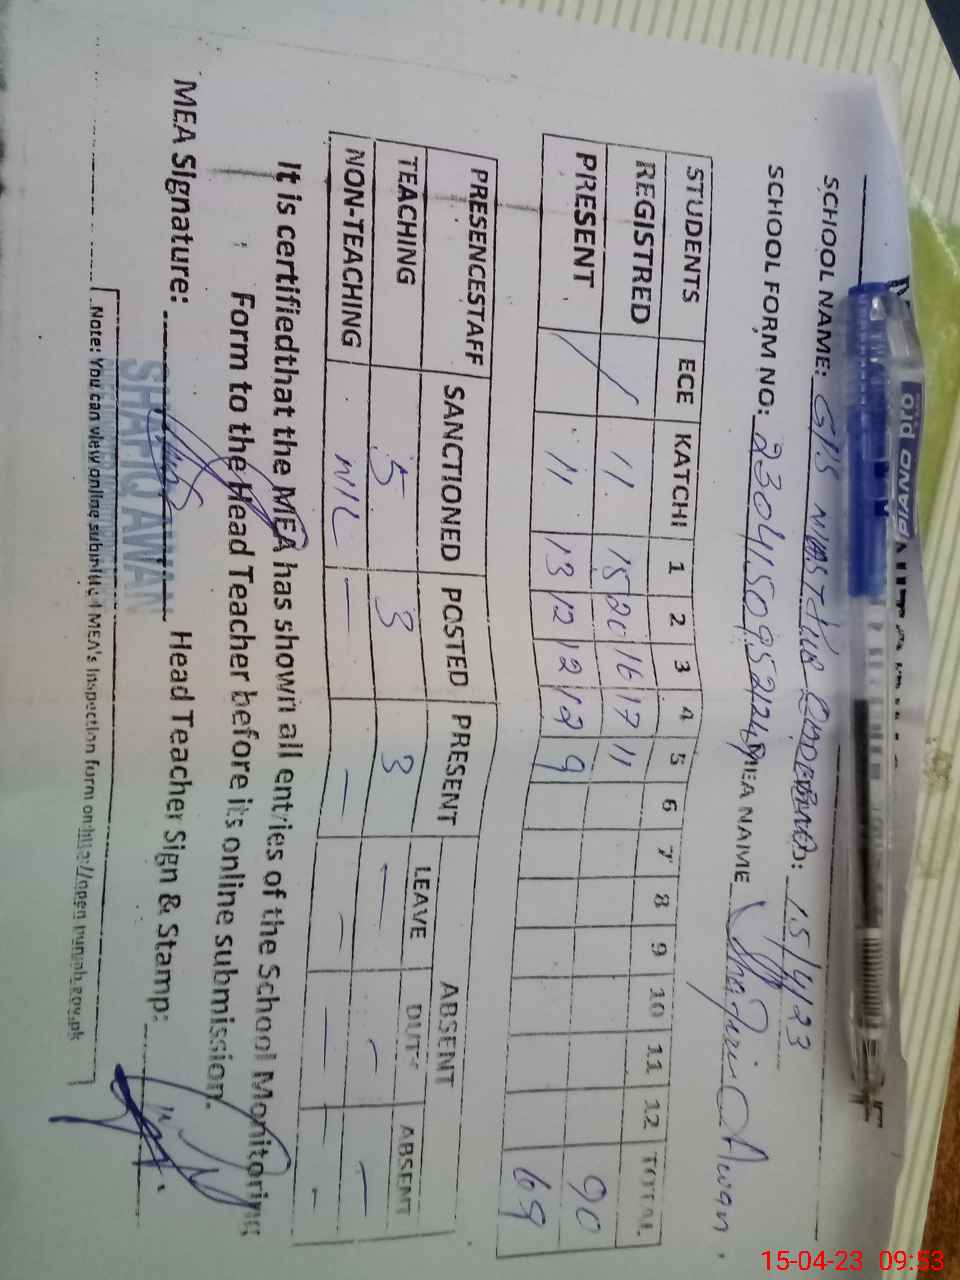 SCHOOL NAME: GHS
15/4/23
SCHOOL FORM NO: MEA NAME Awan
STUDENTS ECE KATCHI 1 2 3 4 5 6 7 8 9 10 11 12 TOTAL
REGISTRED / 11 15 20 16 17 11 90
PRESENT / 11 13 12 12 12 9 69
PRESENCESTAFF SANCTIONED POSTED PRESENT ABSENT
LEAVE DUTY ABSENT
TEACHING 5 3 3 — — —
NON-TEACHING NIL — — — — —
It is certifiedthat the MEA has shown all entries of the School Monitoring
Form to the Head Teacher before its online submission.
MEA Signature: Head Teacher Sign & Stamp:
SHAFIQ AWAN
Note: You can view online submitted MEA's Inspection form on:http://open.punjab.gov.pk
PIANO
15-04-23 09:53